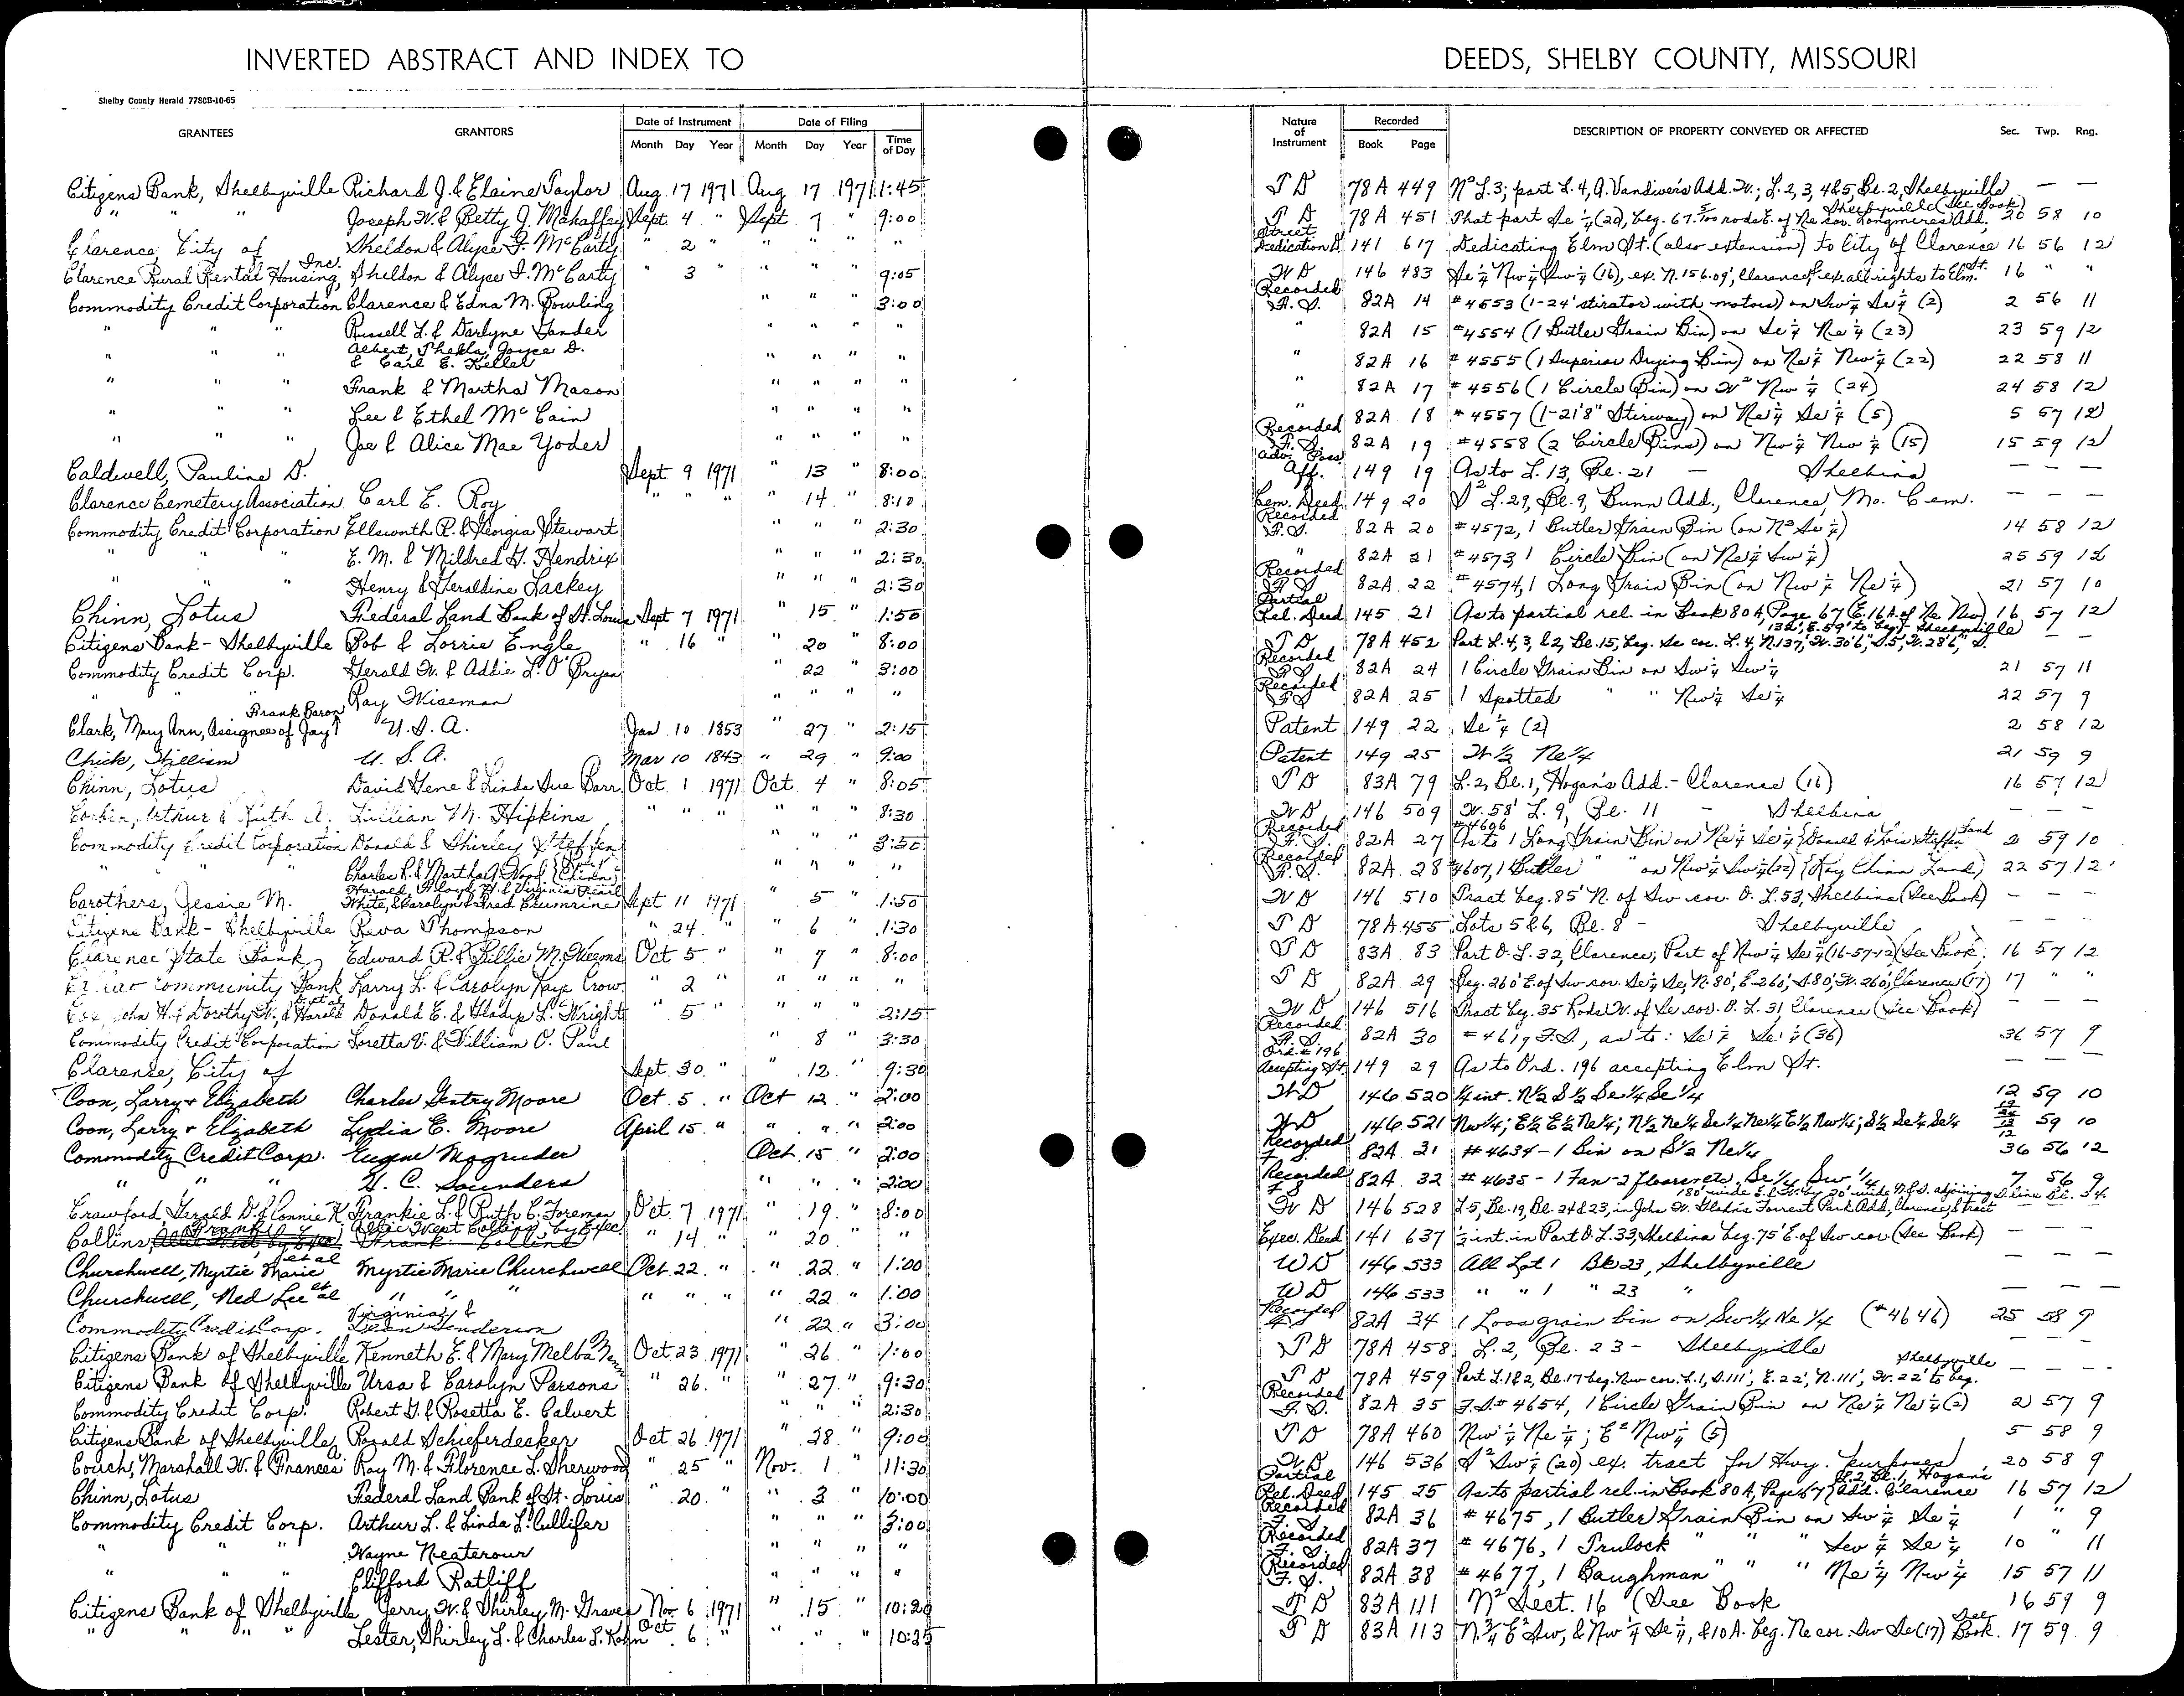 INVERTED ABSTRACT AND INDEX TO DEEDS, SHELBY COUNTY, MISSOURI
Shelby County Herald 7780B-10-65
GRANTEES GRANTORS Date of Instrument Month Day Year Date of Filing Month Day Year Time of Day Nature of Instrument Recorded Book Page DESCRIPTION OF PROPERTY CONVEYED OR AFFECTED Sec. Twp. Rng.
Citizens Bank, Shelbyville Richard J. & Elaine Taylor Aug 17 1971 Aug 17 1971 1:45 T D 78A 449 N² L.3; part L.4, A. Vandiver's Add. W.; L. 2, 3, 4 & 5, Bl. 2, Shelbyville — —
" " " Joseph W. & Betty J. Mahaffey Sept 4 " Sept 7 " 9:00 T D 78A 451 That part Se ¼ (20), beg. 67 5/100 rods E. of Ne cor. Longmires Add, Shelbyville (See Book) 20 58 10
Clarence, City of Sheldon & Alyce F. McCarty " 2 " " " " " Street Dedication D. 141 617 Dedicating Elm St. (also extension) to City of Clarence 16 56 12
Clarence Rural Rental Housing, Inc. Sheldon & Alyce F. McCarty " 3 " " " 9:05 W D 146 483 Se ¼ Nw ¼ Sw ¼ (16), ex. N. 156.09', Clarence, & ex. all rights to Elm St. 16 " "
Commodity Credit Corporation Clarence & Edna M. Bowling " " " 3:00 Recorded F. S. 82A 14 #4653 (1-24' stirator with motors) on Sw ¼ Se ¼ (2) 2 56 11
" " " Russell L. & Darlyne Gander " " " " " 82A 15 #4554 (1 Butler Grain Bin) on Se ¼ Ne ¼ (23) 23 59 12
" " " Albert, Thekla, Joyce D. & Carl E. Keller " " " " " 82A 16 #4555 (1 Superior Drying Bin) on Ne ¼ Nw ¼ (22) 22 58 11
" " " Frank & Martha Mason " " " " " 82A 17 #4556 (1 Circle Bin) on W² Nw ¼ (24) 24 58 12
" " " Lee & Ethel McCain " " " " " 82A 18 #4557 (1-21'8" Stirway) on Ne ¼ Se ¼ (5) 5 57 12
" " " Joe & Alice Mae Yoder " " " " Recorded F. S. 82A 19 #4558 (2 Circle Bins) on Nw ¼ Nw ¼ (15) 15 59 12
Caldwell, Pauline D. Sept 9 1971 " 13 " 8:00 Adv. Poss. Aff. 149 19 As to L. 13, Bl. 21 — Shelbina — — —
Clarence Cemetery Association Carl E. Roy " " " " 14 " 8:10 Cem. Deed 149 20 S² L. 29, Bl. 9, Bunn Add., Clarence, Mo. Cem. — — —
Commodity Credit Corporation Ellsworth R. & Georgia Stewart " " " 2:30 Recorded F. S. 82A 20 #4572, 1 Butler Grain Bin (on N² Se ¼) 14 58 12
" " " E. M. & Mildred G. Hendrix " " " 2:30 " 82A 21 #4573, 1 Circle Bin (on Ne ¼ Sw ¼) 25 59 12
" " " Henry & Geraldine Lackey " " " 2:30 Recorded F. S. 82A 22 #4574, 1 Long Grain Bin (on Nw ¼ Ne ¼) 21 57 10
Chinn, Lotus Federal Land Bank of St. Louis Sept 7 1971 " 15 " 1:50 Partial Rel. Deed 145 21 As to partial rel. in Book 80A, Page 67 (E. 16A. of Ne Nw) 16 57 12
Citizens Bank - Shelbyville Bob & Lorrie Engle " 16 " 20 " 8:00 T D 78A 452 Part L. 4, 3, & 2, Bl. 15, beg. Se cor. L. 4, N. 137', W. 30'6", S. 5', W. 28'6", S. 132', E. 59' to beg. - Shelbyville — —
Commodity Credit Corp. Gerald W. & Addie L. O'Bryan 22 " 3:00 Recorded F S 82A 24 1 Circle Grain Bin on Sw ¼ Sw ¼ 21 57 11
" " " Ray Wiseman " " " " Recorded F S 82A 25 1 Spotted " " Nw ¼ Se ¼ 22 57 9
Clark, Mary Ann, Assignee of Jay, Frank Baron U. S. A. Jan 10 1853 " 27 " 2:15 Patent 149 22 Se ¼ (2) 2 58 12
Chick, William U. S. A. Mar 10 1843 " 29 " 9:00 Patent 149 25 W ½ Ne ¼ 21 59 9
Chinn, Lotus David Gene & Linda Sue Barr Oct. 1 1971 Oct. 4 " 8:05 T D 83A 79 L. 2, Bl. 1, Hogan's Add. - Clarence (16) 16 57 12
Corbin, Arthur & Ruth A. Lillian M. Hipkins " " " " " " 8:30 W D 146 509 W. 58' L. 9, Bl. 11 - Shelbina — — —
Commodity Credit Corporation Donald & Shirley Steffen " " " 3:50 Recorded F. S. 82A 27 #4606 As to 1 Long Grain Bin on Ne ¼ Se ¼ {Donald & Lois Steffen Land 2 59 10
" " Charles R. & Martha A. Wood {Roy Chinn} " " " " Recorded F. S. 82A 28 #4607, 1 Butler " " on Nw ¼ Sw ¼ (22) {Roy Chinn Land} 22 57 12
Carothers, Jessie M. Harold, Floyd H. & Virginia Pearl White, & Carolyn & Fred Crumrine Sept 11 1971 " 5 " 1:50 W D 146 510 Tract beg. 85' N. of Sw cor. O. L. 53, Shelbina (See Book) — — —
Citizens Bank - Shelbyville Reva Thompson " 24 " " 6 " 1:30 T D 78A 455 Lots 5 & 6, Bl. 8 - Shelbyville — — —
Clarence State Bank Edward R. & Billie M. Weems Oct 5 " " 7 " 8:00 T D 83A 83 Part O. L. 32, Clarence; Part of Nw ¼ Se ¼ (16-57-12) (See Book) 16 57 12
Community Bank Larry L. & Carolyn Kaye Crow " 2 " " " " T D 82A 29 Beg. 260' E. of Sw cor. Se ¼ Se, N. 80', E. 260', S. 80', W. 260', Clarence (17) 17 " "
Cox, John H. & Dorothy W., & Harold et al Donald E. & Gladys L. Wright " 5 " " " 2:15 W D 146 516 Tract beg. 35 Rods W. of Se cor. O. L. 31, Clarence (See Book) — — —
Commodity Credit Corporation Loretta V. & William O. Paul " 8 " 3:30 Recorded F. S. 82A 30 #4619 F. S., as to: Se ¼ Se ¼ (36) 36 57 9
Clarence, City of Sept. 30 " " 12 " 9:30 Ord. #196 Accepting St. 149 29 As to Ord. 196 accepting Elm St. — — —
Coon, Larry + Elizabeth Charles Gentry Moore Oct. 5 " Oct 12 " 2:00 W D 146 520 ¼ int. N ½ S ½ Se ¼ Se ¼ 12 59 10
Coon, Larry + Elizabeth Lydia E. Moore April 15 " " " " 2:00 W D 146 521 Nw ¼; E ½ E ½ Ne ¼; N ½ Ne ¼ Se ¼ Ne ¼ E ½ Nw ¼; S ½ Se ¼ Se ¼ 59 10
Commodity Credit Corp. Eugene Magruder Oct. 15 " 2:00 Recorded F S 82A 31 #4634 - 1 Bin on S ½ Ne ¼ 36 56 12
" " " G. C. Saunders " " " 2:00 Recorded F S 82A 32 #4635 - 1 Fan - 2 floors etc. Se ¼ Sw ¼ 7 56 9
Crawford, Harold D. & Connie K. Frankie L. & Ruth C. Foreman Oct. 7 1971 " 19 " 8:00 W D 146 528 L. 5, Bl. 19, Bl. 24 & 23, in John W. Gladis Forrest Park Add, Clarence, & tract 180' wide E. & W. by 20' wide N. & S. adjoining S. line Bl. 34.
Collins, Frank Allie West Collins, by Exec. " 14 " 20 " " Exec. Deed 141 637 ½ int. in Part O. L. 33, Shelbina beg. 75' E. of Sw cor. (See Book) — — —
Churchwell, Myrtie Marie et al Myrtie Marie Churchwell Oct. 22 " " 22 " 1:00 W D 146 533 All Lot 1 Bk 23, Shelbyville — — —
Churchwell, Ned Lee et al " " " " " " " 22 " 1:00 W D 146 533 " " 1 " 23 " — — —
Commodity Credit Corp. Virginia & Dean Henderson " 22 " 3:00 Recorded F S 82A 34 1 Loos grain bin on Sw ¼ Ne ¼ (#4646) 25 58 9
Citizens Bank of Shelbyville Kenneth E. & Mary Melba Oct. 23 1971 " 26 " 1:00 T D 78A 458 L. 2, Bl. 23 - Shelbyville — — —
Citizens Bank of Shelbyville Ursa & Carolyn Parsons " 26 " " 27 " 9:30 T D 78A 459 Part L. 1 & 2, Bl. 17 beg. Nw cor. L. 1, S. 111', E. 22', N. 111', W. 22' to beg. Shelbyville — — —
Commodity Credit Corp. Robert G. & Rosetta E. Calvert " " " 2:30 Recorded F. S. 82A 35 F. S. #4654, 1 Circle Grain Bin on Ne ¼ Ne ¼ (2) 2 57 9
Citizens Bank of Shelbyville Ronald Schieferdecker Oct. 26 1971 " 28 " 9:00 T D 78A 460 Nw ¼ Ne ¼; E² Nw ¼ (5) 5 58 9
Couch, Marshall W. & Frances A. Ray M. & Florence L. Sherwood " 25 " Nov. 1 " 11:30 W D 146 536 S² Sw ¼ (20) ex. tract for Hwy. purposes 20 58 9
Chinn, Lotus Federal Land Bank of St. Louis " 20 " " 3 " 10:00 Partial Rel. Deed 145 25 As to partial rel. in Book 80A, Page 67 {L. 2, Bl. 1, Hogans Add. Clarence 16 57 12
Commodity Credit Corp. Arthur L. & Linda L. Cullifer " " " 3:00 Recorded F. S. 82A 36 #4675, 1 Butler Grain Bin on Sw ¼ Se ¼ 1 " 9
" " " Wayne Neaterour " " " " Recorded F. S. 82A 37 #4676, 1 Trulock " " " Sw ¼ Se ¼ 10 " 11
" " " Clifford Ratliff " " " " Recorded F. S. 82A 38 #4677, 1 Baughman " " " Ne ¼ Nw ¼ 15 57 11
Citizens Bank of Shelbyville Jerry W. & Shirley M. Graves Nov. 6 1971 " 15 " 10:20 T D 83A 111 N² Sect. 16 (See Book 16 59 9
" " " " Lester, Shirley L. & Charles L. Kohn Oct. 6 " " " " 10:25 T D 83A 113 N. ¾ E² Sw, & Nw ¼ Se ¼, & 10 A. beg. Ne cor. Sw Se (17) See Book. 17 59 9